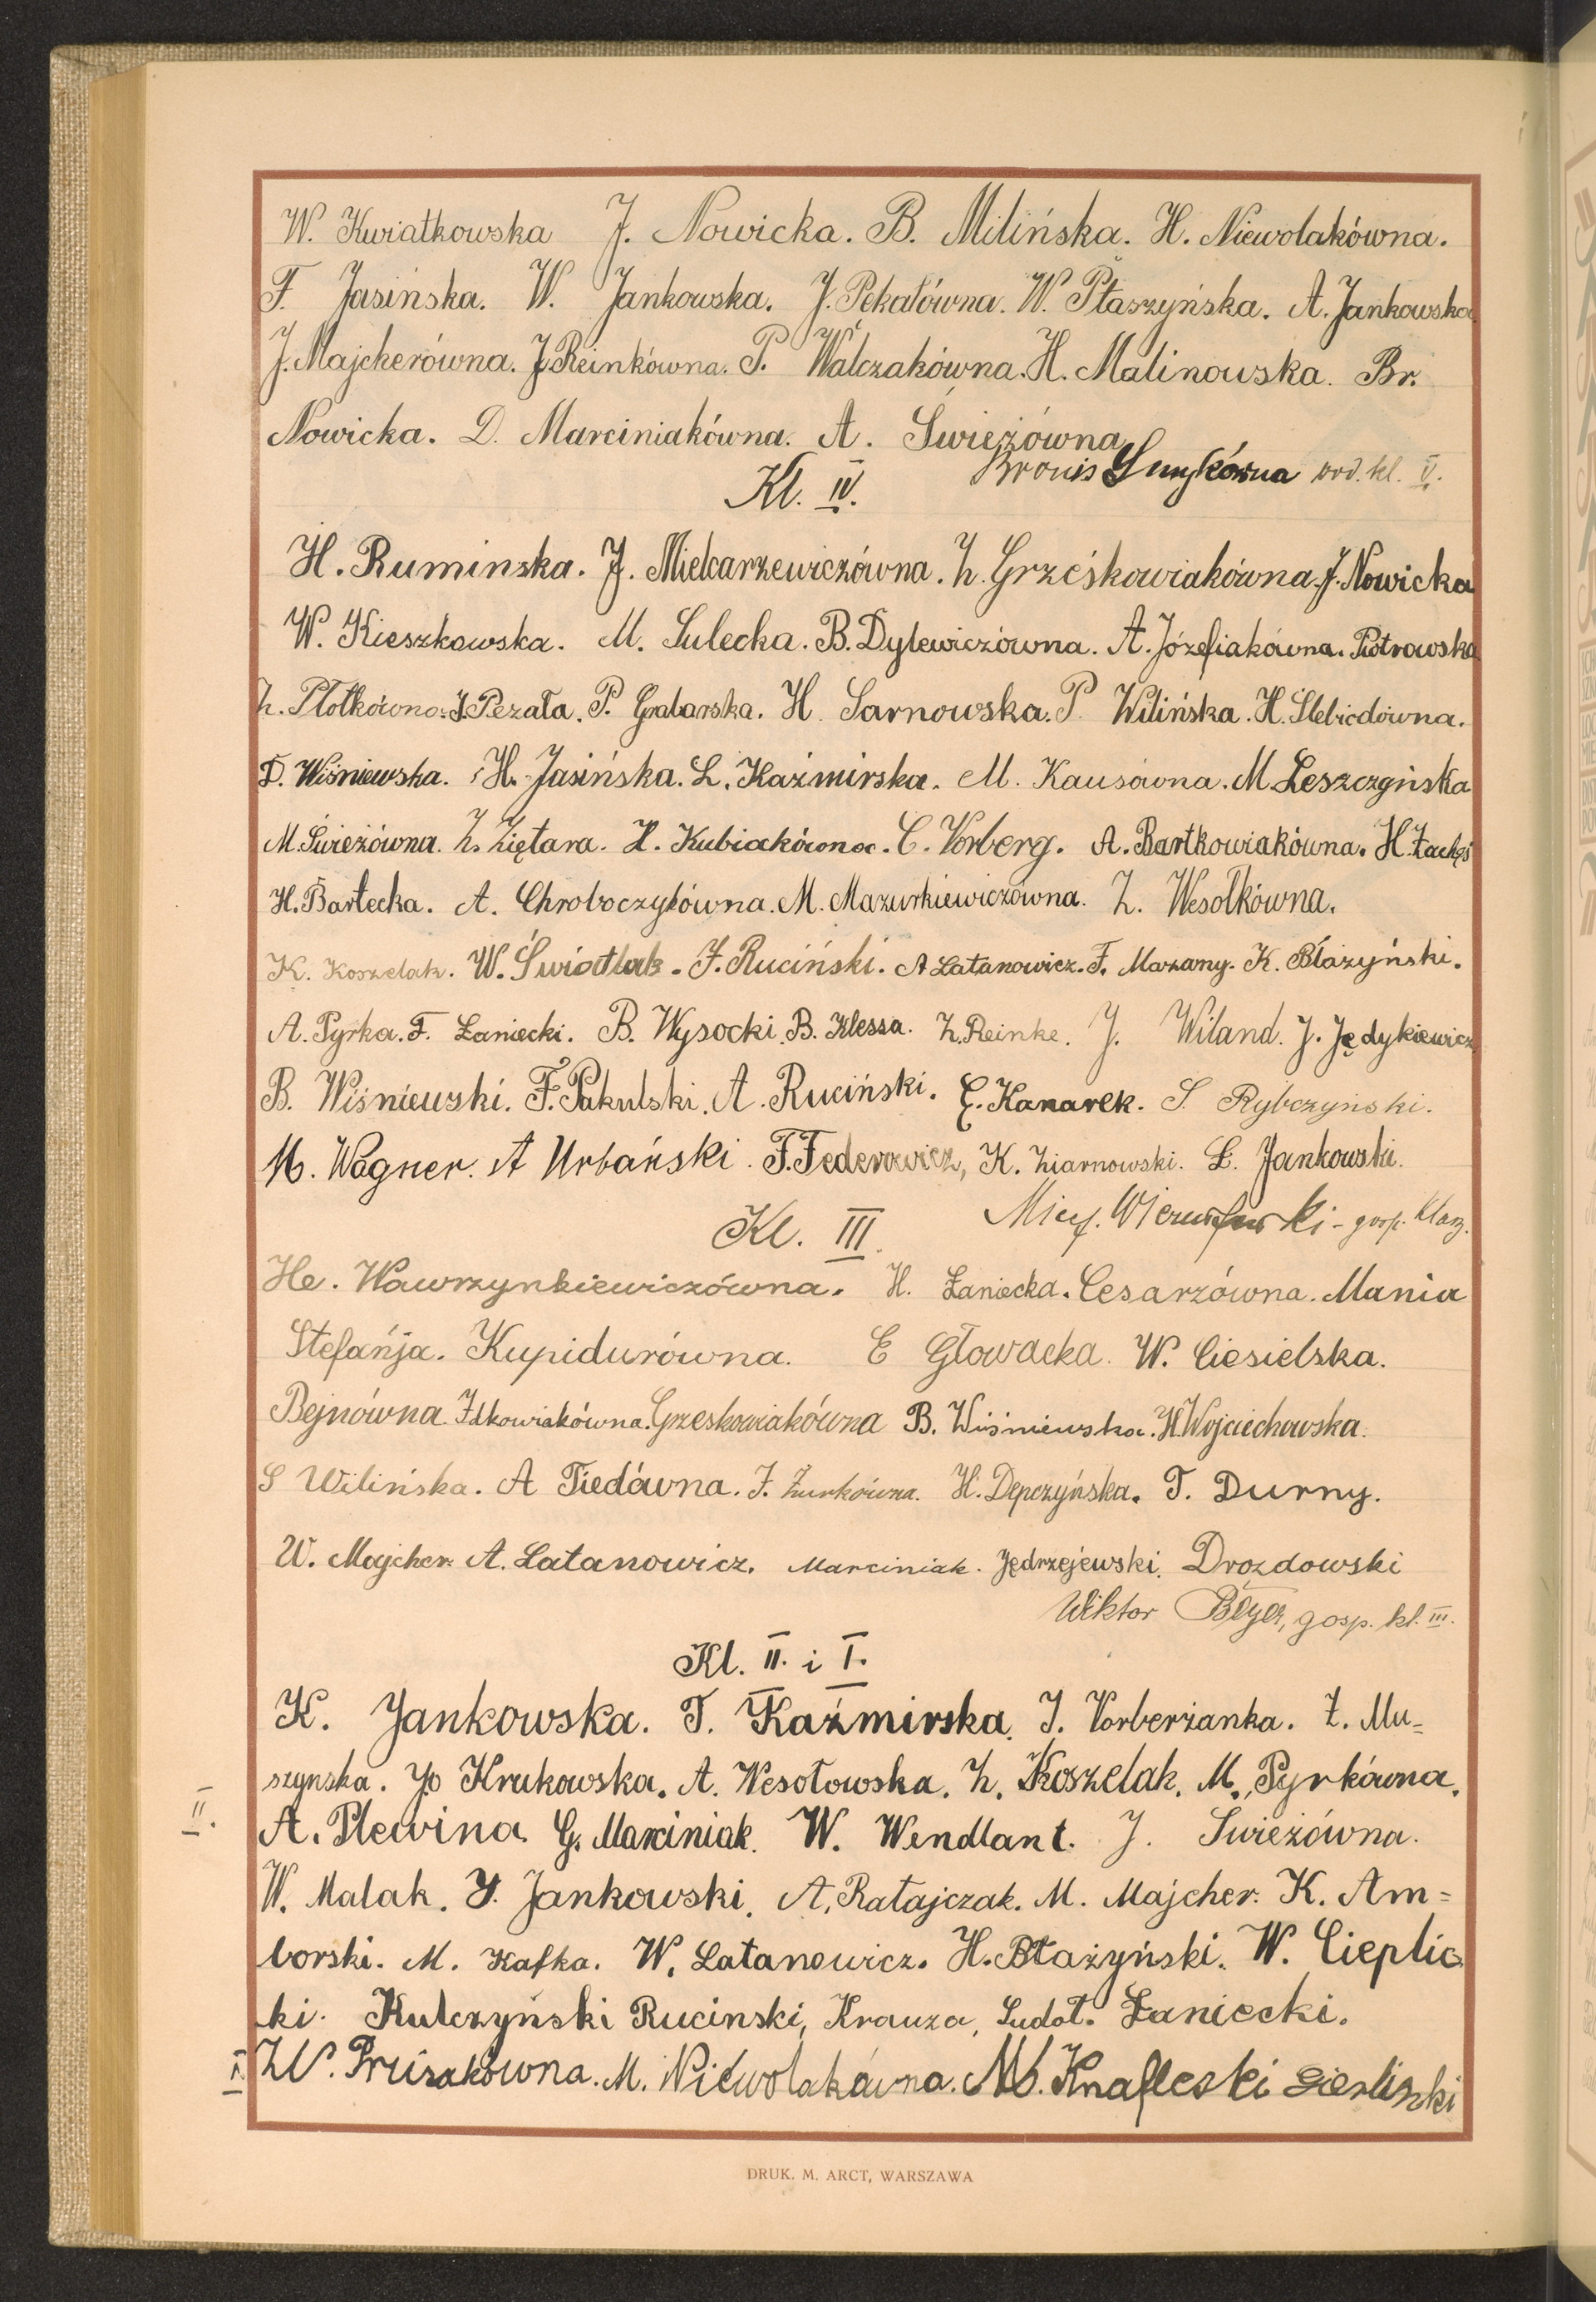 W. Kwiatkowska J. Nowicka. B. Milińska. H. Niewolakówna.
F. Jasińska. W. Jankowska. J. Pekałówna. W. Ptaszyńska. A. Jankowska
J. Majcherówna. J. Reinkówna. P. Walczakówna. H. Malinowska. Br.
Nowicka. D. Marciniakówna. A. Świeżówna
Kl. IV. Bronis Smykówna kl. V.
H. Ruminska. J. Mielcarzewiczówna. Z. Grześkowiakówna. J. Nowicka
W. Kieszkowska. M. Sulecka. B. Dylewiczówna. A. Józefiakówna. Piotrowska
Z. Plotkówna. J. Pezała. P. Grabarska. H. Sarnowska. P. Wilińska. H. Slebiodówna.
D. Wiśniewska. H. Jasińska. L. Kaźmirska. M. Kausówna. M. Leszczyńska
M. Świeżówna. Z. Ziętara. H. Kubiakówna. C. Vorberg. A. Bartkowiakówna. H.
H. Bartecka. A. Chroboczykówna. M. Mazurkiewiczówna. Z. Wesołkówna.
K. Koszelak. W. Świätlak. J. Ruciński. A Latanowicz. F. Mazany. K. Błażyński.
A. Pyrka. F. Łaniecki. B. Wysocki. B. Klessa. Z. Reinke. J. Wiland. J. Jędykiewicz
B. Wiśniewski. F. Pakulski. A. Ruciński. C. Kanarek. S. Rybczyński.
M. Wagner. A Urbański. F. Federowicz, K. Ziarnowski. L. Jankowski.
Kl. III. - gosp. klasy.
He. Wawrzynkiewiczówna. H. Łaniecka. Cesarzówna. Mania
Stefańja. Kupidurówna. E Głowacka. W. Ciesielska.
Bejnówna. Idkowiakówna. Grzeskowiakówna B. Wiśniewska. H. Wojciechowska.
S Wilińska. A Tiedówna. J. Żurkówna. H. Depczyńska. T. Durny.
W. Majcher. A. Latanowicz. Marciniak. Jędrzejewski. Drozdowski
Wiktor Beyer, gosp. kl. III.
Kl. II. i I.
K. Jankowska. T. Kaźmirska. J. Vorberżanka. Z. Mu=
szynska. Jo Krukowska. A. Wesołowska. Z. Koszelak. M. Pyrkówna.
II. A. Plewina. G. Marciniak. W. Wendlant. J. Swieżówna.
W. Malak. J. Jankowski. A. Ratajczak. M. Majcher. K. Am=
borski. M. Kafka. W. Latanowicz. H. Błażyński. W. Cieplic
ki. Kulczyński Rucinski, Krauza, Ludot. Łaniecki.
I. W. Prusakówna. M. Niewolakówna. M. Knafleski
DRUK. M. ARCT, WARSZAWA